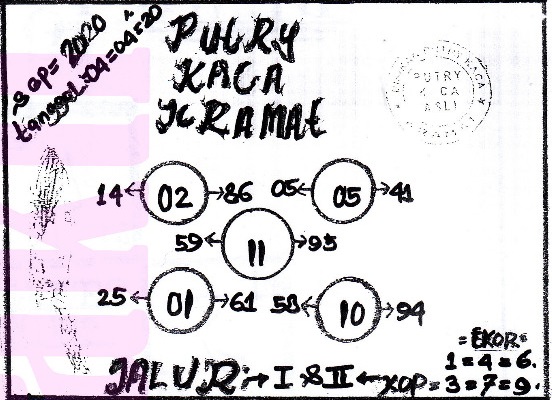 SGP= 2020
tanggal:04=04=20
PUTRY
KACA
KRAMAT
PUTRY
KACA
ASLI
14 ← 02 → 86
05 ← 05 → 41
59 ← 11 → 95
25 ← 01 → 61
58 ← 10 → 94
JALUR: → I & II ← KOP=
=EKOR=
1=4=6.
3=7=9.